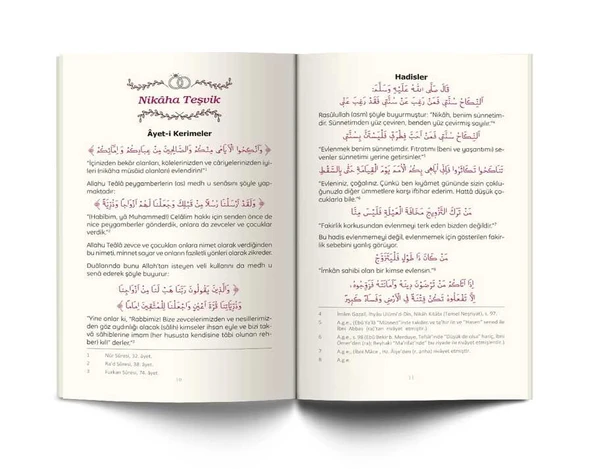 Nikâha Teşvik
Âyet-i Kerimeler
﴿ وَاَنْكِحُوا الْاَيَامٰى مِنْكُمْ وَالصَّالِحٖينَ مِنْ عِبَادِكُمْ وَاِمَٓائِكُمْ ﴾
"İçinizden bekâr olanları, kölelerinizden ve câriyelerinizden iyi-
leri (nikâha müsâid olanları) evlendirin!"¹
Allahu Teâlâ peygamberlerin (as) medh u senâsını şöyle yap-
maktadır:
﴿ وَلَقَدْ اَرْسَلْنَا رُسُلاً مِنْ قَبْلِكَ وَجَعَلْنَا لَهُمْ اَزْوَاجاً وَذُرِّيَّةً ﴾
"(Habîbim, yâ Muhammed!) Celâlim hakkı için senden önce de
nice peygamberler gönderdik, onlara da zevceler ve çocuklar
verdik."²
Allahu Teâlâ zevce ve çocukları onlara nimet olarak verdiğinden
bu nimeti, minnet sayar ve onların fazîletli yönleri olarak zikreder.
Duâlarında bunu Allah'tan isteyen veli kullarını da medh u
senâ ederek şöyle buyurur:
وَالَّذٖينَ يَقُولُونَ رَبَّنَا هَبْ لَنَا مِنْ اَزْوَاجِنَا
وَذُرِّيَّاتِنَا قُرَّةَ اَعْيُنٍ وَاجْعَلْنَا لِلْمُتَّقٖينَ اِمَاماً
"Yine onlar ki, "Rabbimiz! Bize zevcelerimizden ve nesillerimiz-
den göz aydınlığı olacak (sâlih) kimseler ihsan eyle ve bizi tak-
vâ sâhiblerine imam (her hususta kendisine tâbi olunan reh-
ber) kıl!" derler."³
1 Nûr Sûresi, 32. âyet.
2 Ra'd Sûresi, 38. âyet.
3 Furkan Sûresi, 74. âyet.
Hadisler
قَالَ صَلَّى اللهُ عَلَيْهِ وَسَلَّمَ:
اَلنِّكَاحُ سُنَّتٖي فَمَنْ رَغِبَ عَنْ سُنَّتٖي فَقَدْ رَغِبَ عَنّٖي
Rasûlullah (asm) şöyle buyurmuştur: "Nikâh, benim sünnetim-
dir. Sünnetimden yüz çeviren, benden yüz çevirmiş sayılır."⁴
اَلنِّكَاحُ سُنَّتٖي فَمَنْ اَحَبَّ فِطْرَتٖي فَلْيَسْتَنَّ بِسُنَّتٖي
"Evlenmek benim sünnetimdir. Fıtratımı (beni ve yaşantımı) se-
venler sünnetimi yerine getirsinler."⁵
تَنَاكَحُوا تَكَاثَرُوا فَاِنّٖي اُبَاهٖي بِكُمُ الْاُمَمَ يَوْمَ الْقِيَامَةِ حَتّٰى بِالسِّقْطِ
"Evleniniz, çoğalınız. Çünkü ben kıyâmet gününde sizin çoklu-
ğunuzla diğer ümmetlere karşı iftihar ederim. Hattâ düşük ço-
cuklarla bile."⁶
مَنْ تَرَكَ التَّزْوٖيجَ مَخَافَةَ الْعَيْلَةِ فَلَيْسَ مِنَّا
"Fakirlik korkusundan evlenmeyi terk eden bizden değildir."⁷
Bu hadis evlenmemeyi değil, evlenmemek için gösterilen fakir-
lik sebebini yanlış görüyor.
مَنْ كَانَ ذَا طَوْلٍ فَلْيَتَزَوَّجْ
"İmkân sahibi olan bir kimse evlensin."⁸
اِذَا اَتَاكُمْ مَنْ تَرْضَوْنَ دٖينَهُ وَاَمَانَتَهُ فَزَوِّجُوهُ،
اِلَّا تَفْعَلُوهُ تَكُنْ فِتْنَةٌ فِي الْاَرْضِ وَفَسَادٌ كَبٖيرٌ
4 İmâm Gazalî, İhyâu Ulûmi'd-Dîn, Nikâh Kitâbı (Temel Neşriyat), s. 97.
5 A.g.e.,
6 A.g.e.,
7 A.g.e.,
8 A.g.e.